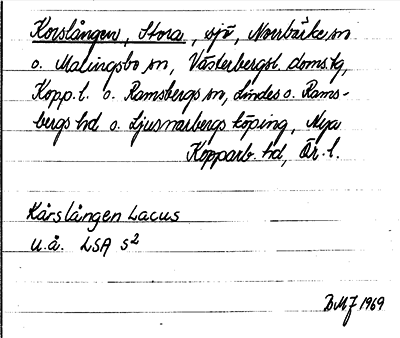 Korslången, Stora, sjö, Norrbärke sn
o. Malingsbo sn, Västerbergsl. doms.tg,
Kopp.l. o. Ramsbergs sn, Lindes o. Rams-
bergs hd o. Ljusnarsbergs köping, Nya
Kopparb. hd, Ör. l.
Kårslången Lacus
u.å. LSA S2
BMJ 1969